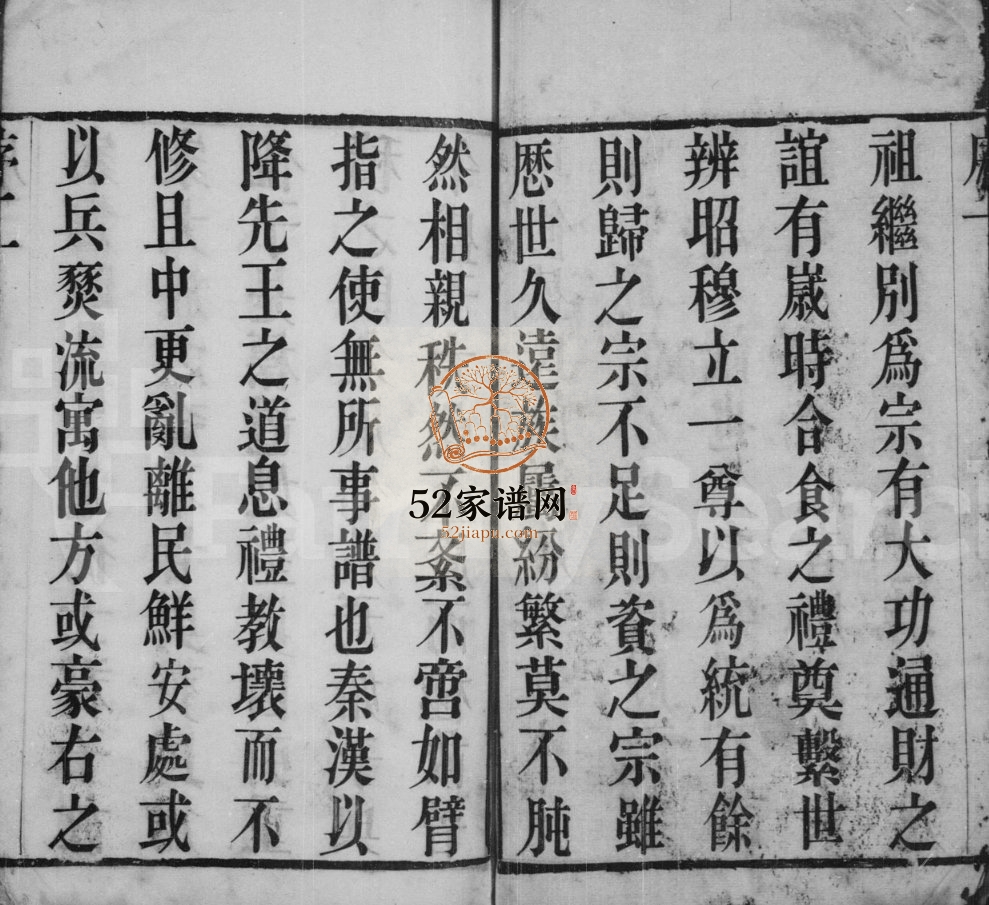 祖繼別爲宗有大功通財之
誼有嵗時合食之禮奠繫世
辨昭穆立一尊以爲統有餘
則歸之宗不足則資之宗雖
歷世久遠族屬紛繁莫不肫
然相親秩然不紊不啻如臂
指之使無所事譜也秦漢以
降先王之道息禮教壞而不
修且中更亂離民鮮安處或
以兵燹流寓他方或豪右之
52家谱网
52jiapu.com